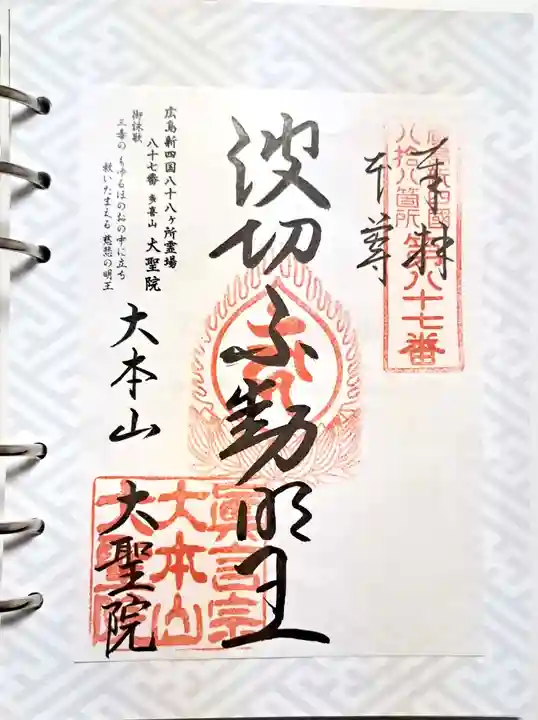 奉拝
本尊
廣島新四國
八拾八箇所
第八十七番
波切不動明王
広島新四国八十八ヶ所霊場
八十七番 多喜山 大聖院
御詠歌
三毒の もゆるほのおの中に立ち
救いたまえる 慈悲の明王
大本山
大聖院
眞言宗
大本山
大聖院